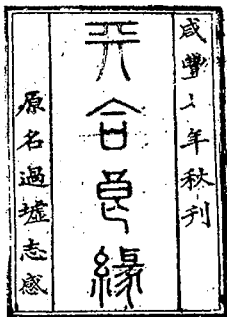 咸豐年秋刊
天合良緣
原名過墟志感